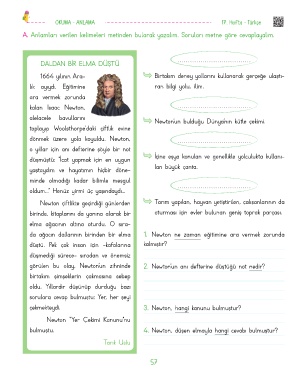 OKUMA - ANLAMA
19. Hafta - Türkçe
A. Anlamları verilen kelimeleri metinden bularak yazalım. Soruları metne göre cevaplayalım.
DALDAN BİR ELMA DÜŞTÜ
1664 yılının Ara-
lık ayıydı. Eğitimine
ara vermek zorunda
kalan Isaac Newton,
alelacele bavullarını
toplayıp Woolsthorpe'daki çiftlik evine
dönmek üzere yola koyuldu. Newton,
o yıllar için anı defterine şöyle bir not
düşmüştü: "İcat yapmak için en uygun
yaştaydım ve hayatımın hiçbir döne-
minde olmadığı kadar bilimle meşgul
oldum..." Henüz yirmi üç yaşındaydı...
Newton çiftlikte geçirdiği günlerden
birinde, kitaplarını da yanına alarak bir
elma ağacının altına oturdu. O sıra-
da ağacın dallarının birinden bir elma
düştü. Pek çok insan için -kafalarına
düşmediği sürece- sıradan ve önemsiz
görülen bu olay, Newton'un zihninde
birtakım şimşeklerin çakmasına sebep
oldu. Yıllardır düşünüp durduğu bazı
sorulara cevap bulmuştu: Yer, her şeyi
çekmekteydi.
Newton "Yer Çekimi Kanunu"nu
bulmuştu.
Tarık Uslu
Birtakım deney yollarını kullanarak gerçeğe ulaştı-
ran bilgi yolu, ilim.
Newton'un bulduğu Dünya'nın kütle çekimi.
İçine eşya konulan ve genellikle yolculukta kullanı-
lan büyük çanta.
Tarım yapılan, hayvan yetiştirilen, çalışanlarının da
oturması için evler bulunan geniş toprak parçası.
1. Newton ne zaman eğitimine ara vermek zorunda
kalmıştır?
2. Newton'un anı defterine düştüğü not nedir?
3. Newton, hangi kanunu bulmuştur?
4. Newton, düşen elmayla hangi cevabı bulmuştur?
57